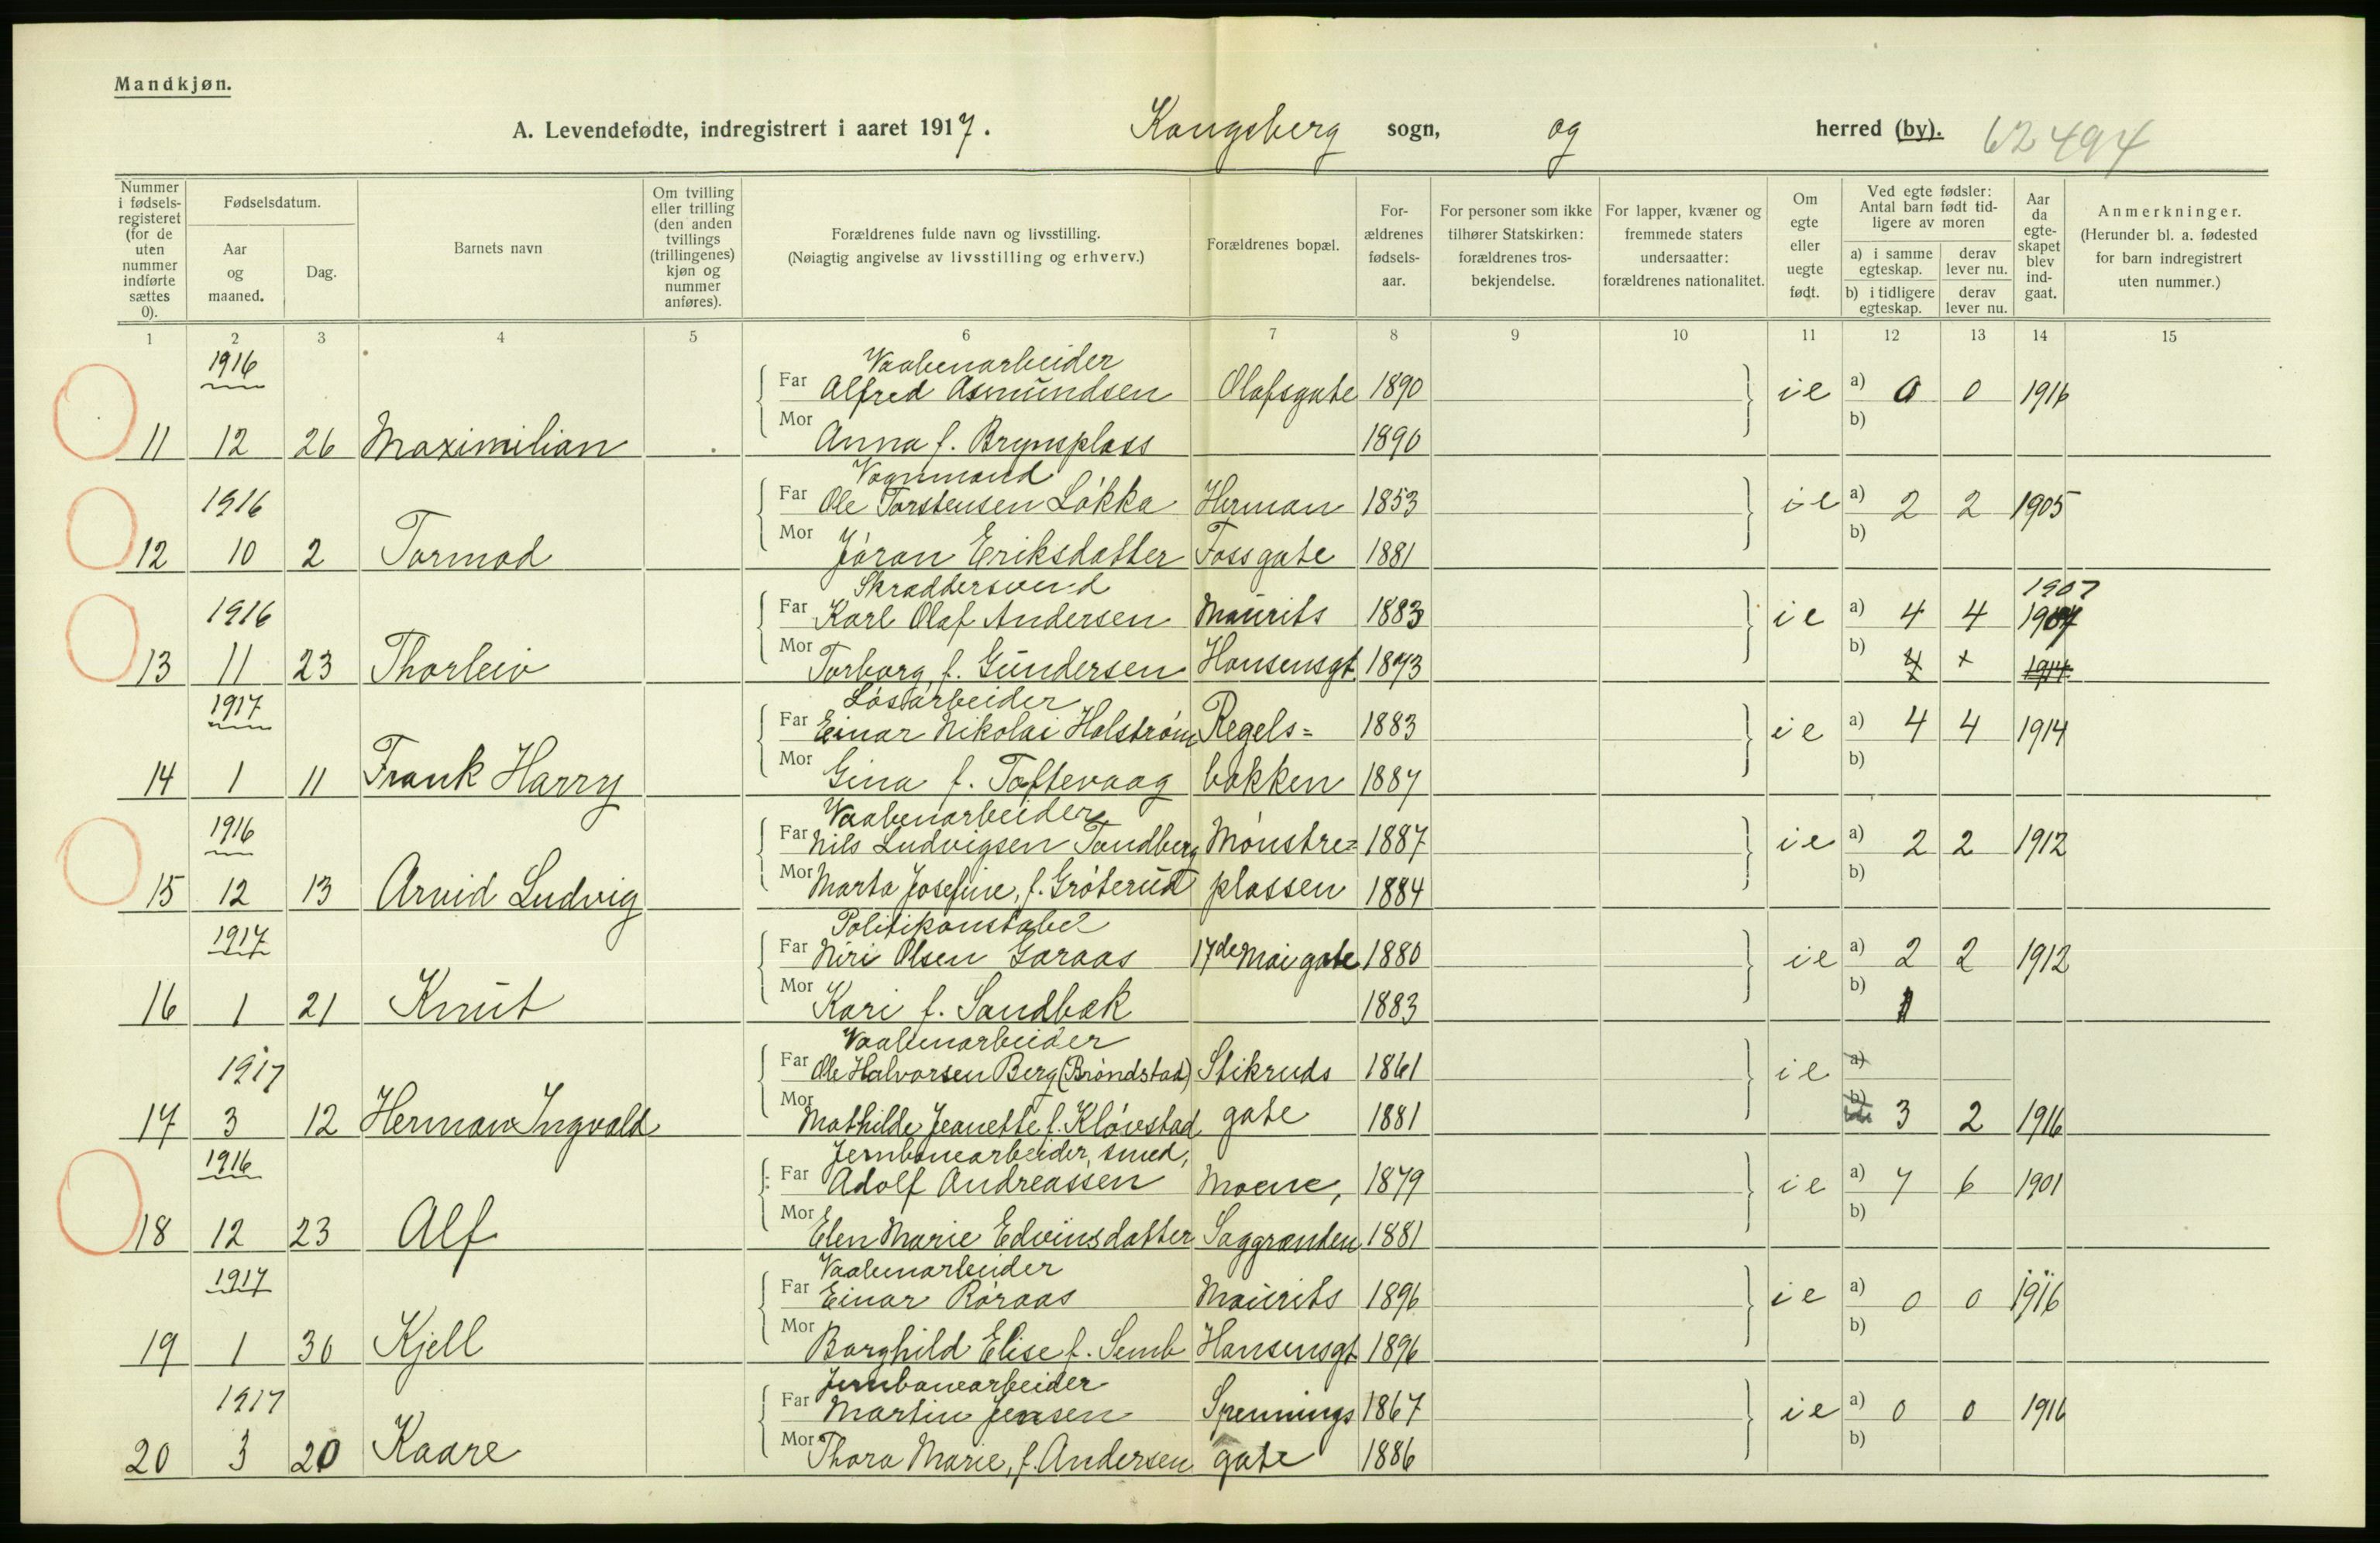 Mandkjøn.
A. Levendefødte, indregistrert i aaret 1917. Kongsberg sogn, og herred (by). 62494
Nummer i fødsels-registeret (for de uten nummer indførte sættes 0).
Fødselsdatum.
Aar og maaned.
Dag.
Barnets navn
Om tvilling eller trilling (den anden tvillings (trillingenes) kjøn og nummer anføres).
Forældrenes fulde navn og livsstilling.
(Nøiagtig angivelse av livsstilling og erhverv.)
Forældrenes bopæl.
For-ældrenes fødsels-aar.
For personer som ikke tilhører Statskirken: forældrenes tros-bekjendelse.
For lapper, kvæner og fremmede staters undersaatter: forældrenes nationalitet.
Om egte eller uegte født.
Ved egte fødsler: Antal barn født tid-ligere av moren
a) i samme egteskap. derav lever nu.
b) i tidligere egteskap. derav lever nu.
Aar da egte-skapet blev ind-gaat.
Anmerkninger.
(Herunder bl. a. fødested for barn indregistrert uten nummer.)
1 2 3 4 5 6 7 8 9 10 11 12 13 14 15
1916 Vaabenarbeider
Far Alfred Asmundsen Olafsgate 1890 ie a) 0 0 1916
11 12 26 Maximilian Mor Anna f. Brynsplass 1890 b)
Vognmand
1916 Far Ole Torstensen Løkka Herman 1853 ie a) 2 2 1905
12 10 2 Tormod Mor Jøran Eriksdatter Fossgate 1881 b)
Skræddersvend 1907
1916 Far Karl Olaf Andersen Maurits 1883 ie a) 4 4
13 11 23 Thorleiv Mor Torborg, f. Gundersen Hansensgt. 1873 b) 1914
1917 Løsarbeider
Far Einar Nikolai Holstrøm Regels= 1883 ie a) 4 4 1914
14 1 11 Frank Harry Mor Gina f. Toftevaag bakken 1887 b)
1916 Vaabenarbeider
Far Nils Ludvigsen Tandberg Mønstre= 1887 ie a) 2 2 1912
15 12 13 Arvid Ludvig Mor Marta Josefine, f. Grøterud plassen 1884 b)
1917 Politikonstabel
Far Niri Olsen Garaas 17de Mai gate 1880 ie a) 2 2 1912
16 1 21 Knut Mor Kari f. Sandbæk 1883 b) 1
Vaabenarbeider
1917 Far Ole Halvorsen Berg (Brøndstad) Stikruds 1861 ie a)
17 3 12 Herman Ingvald Mor Mathilde Jeanette f. Kløvstad gate 1881 b) 3 2 1916
1916 Jernbanearbeider, smed,
Far Adolf Andreassen Moene, 1879 ie a) 7 6 1901
18 12 23 Alf Mor Elen Marie Edvinsdatter Saggrænden 1881 b)
1917 Vaabenarbeider
Far Einar Røraas Maurits 1896 ie a) 0 0 1916
19 1 30 Kjell Mor Borghild Elise f. Semb Hansensgt 1896 b)
Jernbanearbeider
1917 Far Martin Jensen Spennings 1867 ie a) 0 0 1916
20 3 20 Kaare Mor Thora Marie, f. Andersen gate 1886 b)